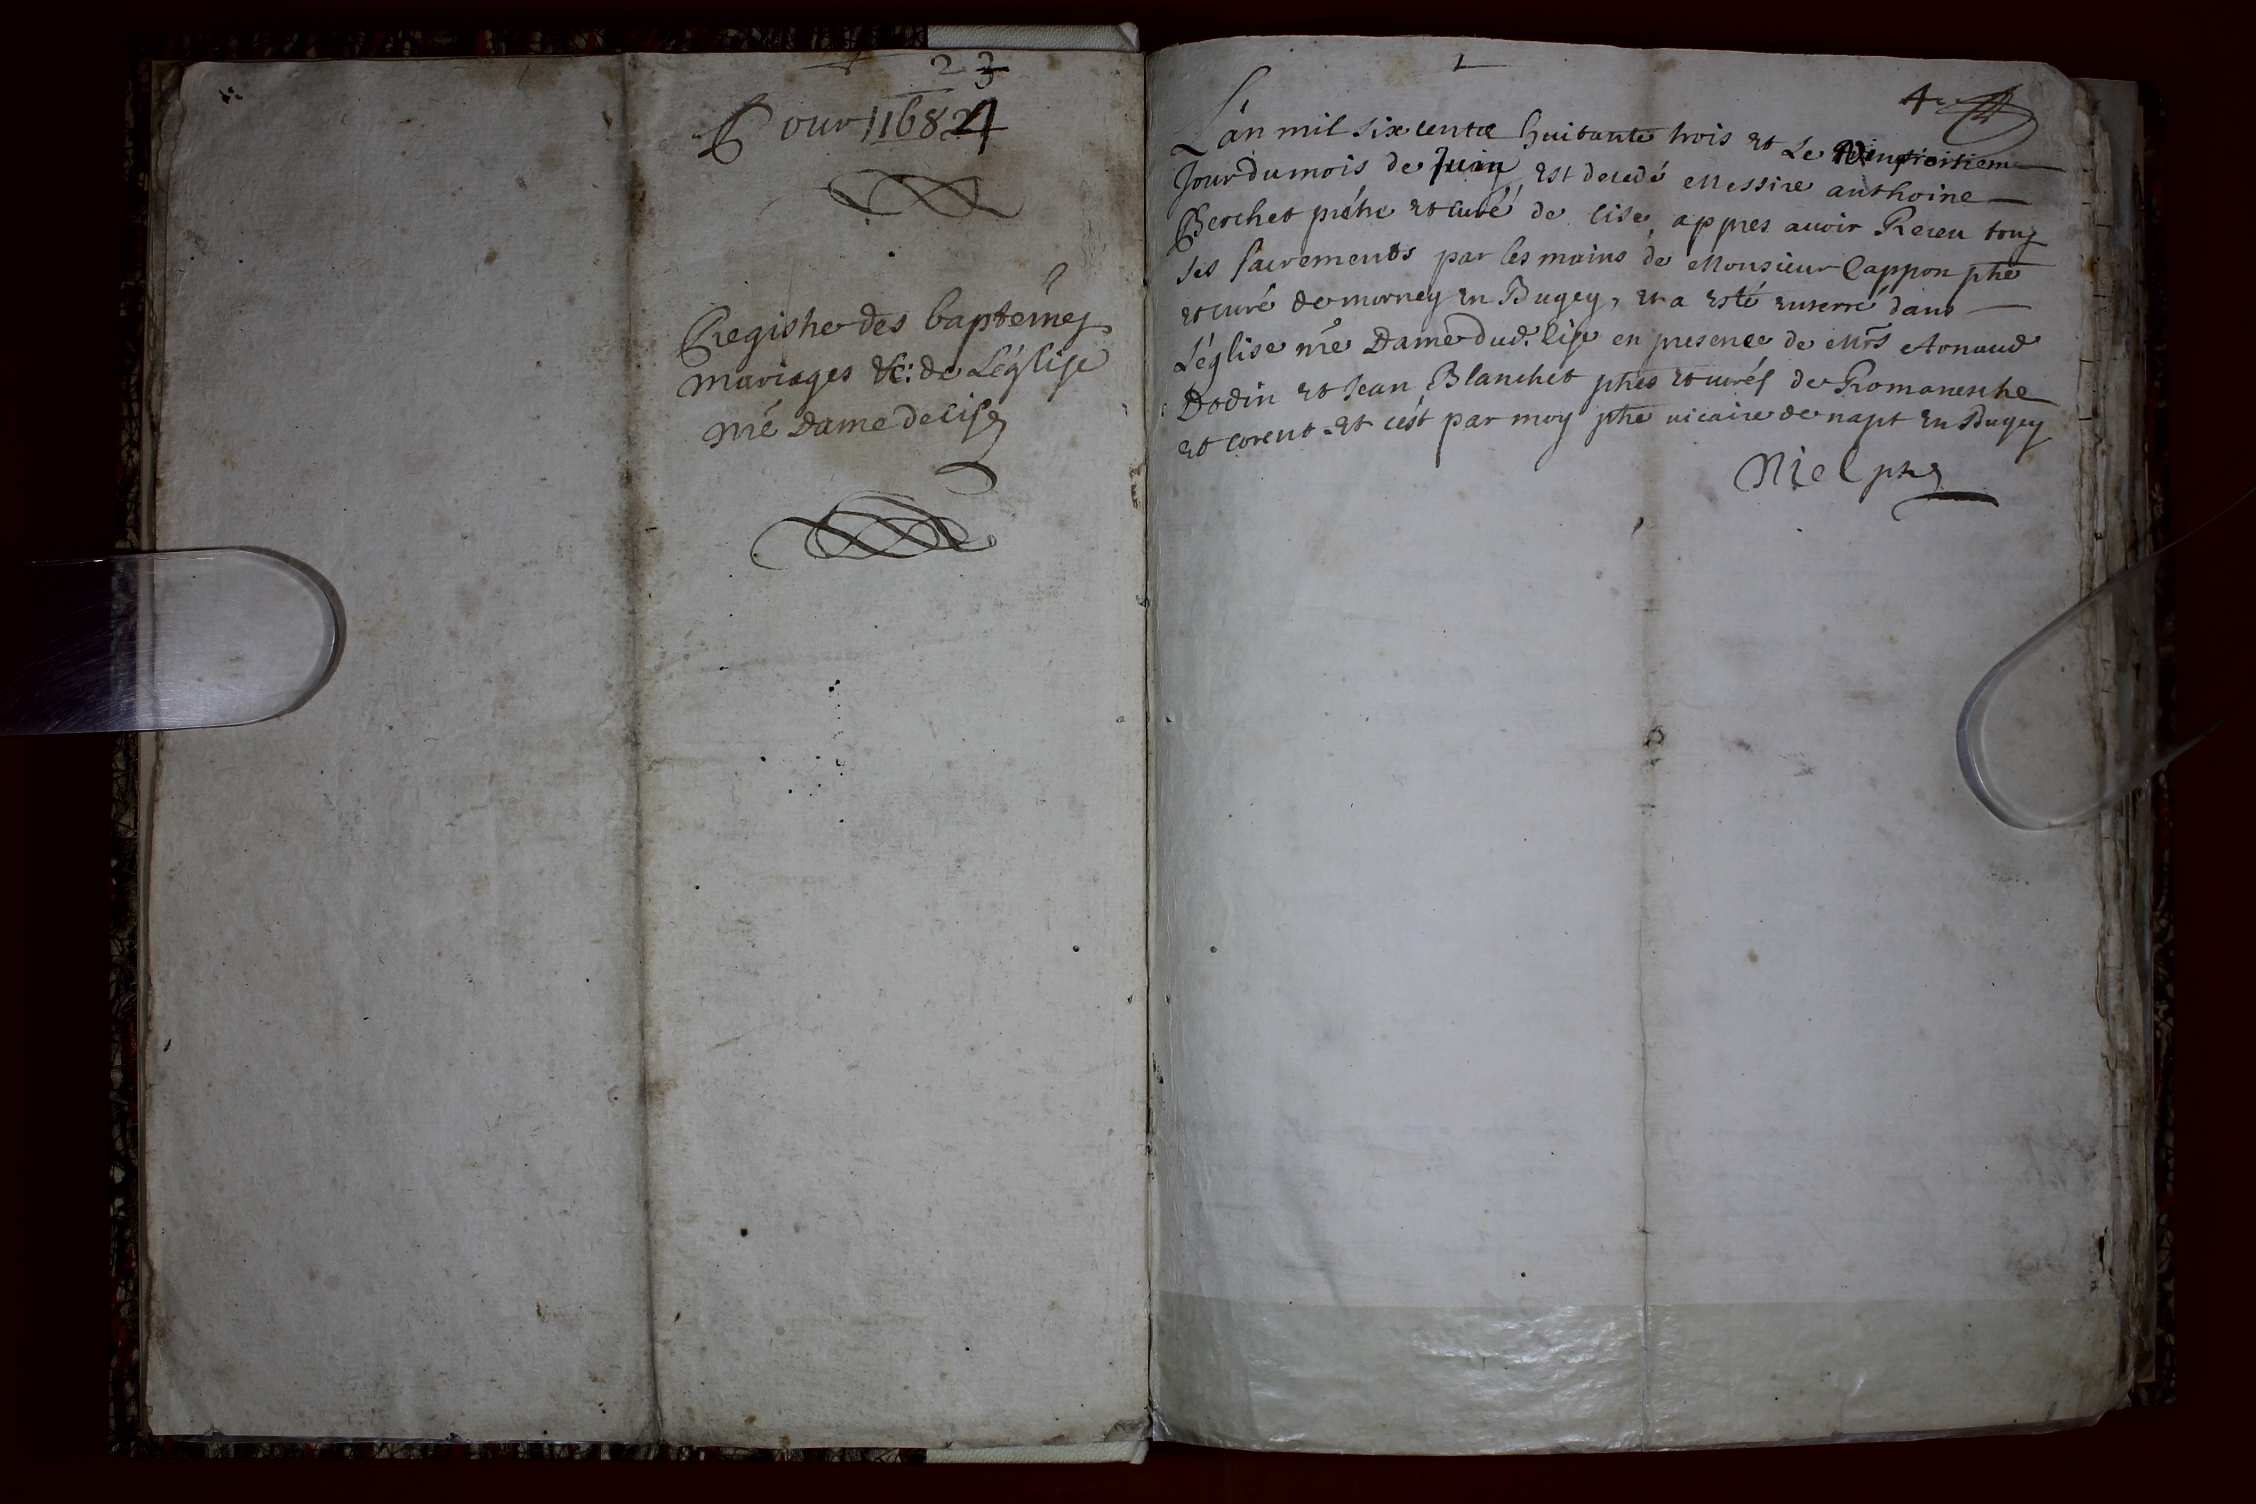 2 3
Pour 1684
Registre des baptemes
mariages &c: de L'église
nre Dame de Cise
1
4
L'an mil six cents huitante trois et Le
Jour du mois de Juin est decedé Messire anthoine
Berchet prêtre et curé de Cise, appres auoir Receu tous
ses sacrements par les mains de Monsieur Cappon pbre
et curé de mornay en Bugey, et a esté enterré dans
L'église nre Dame dud. Cise en presence de Mrs
Dodin et Jean Blanchet pbres et curés de Romanesche
et corent. Et c'est par moy pbre uicaire de napt en Bugey
Niel pbre